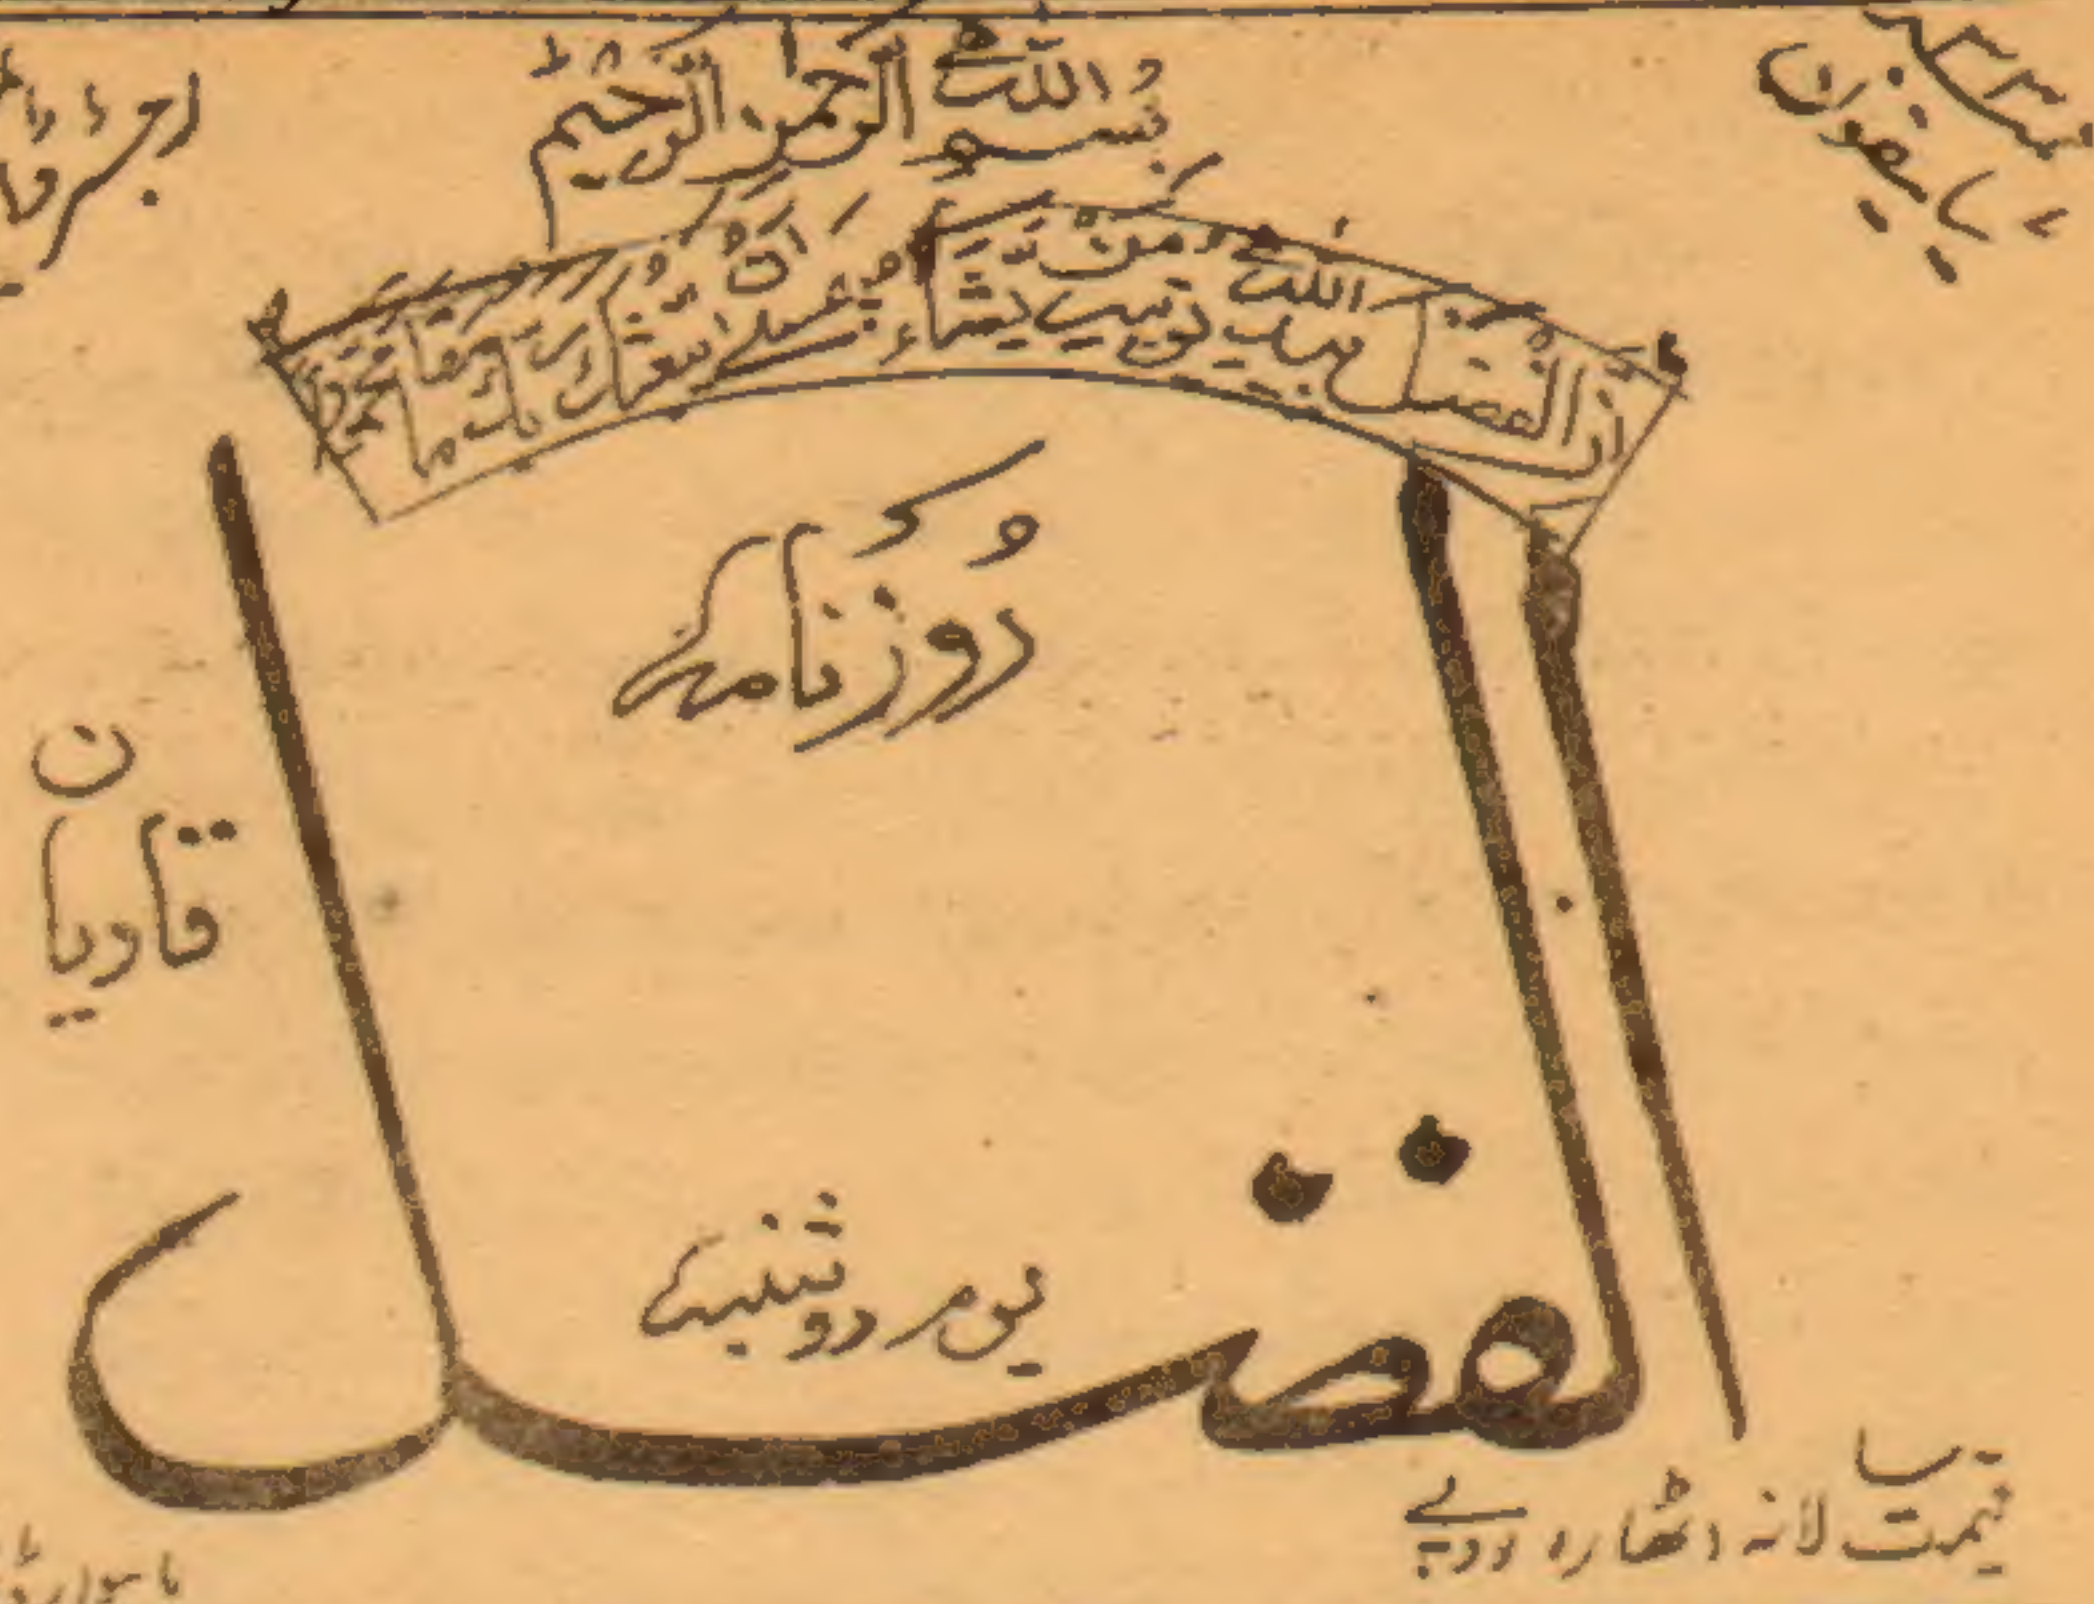 بسم اللہ الرحمن الرحیم
ان الفضل بید اللہ یؤتیہ من یشاء عسیٰ ان یبعثک ربک مقاما محمودا
روزنامہ
قادیان
الفضل
یوم دوشنبہ
قیمت سالانہ اٹھارہ روپے